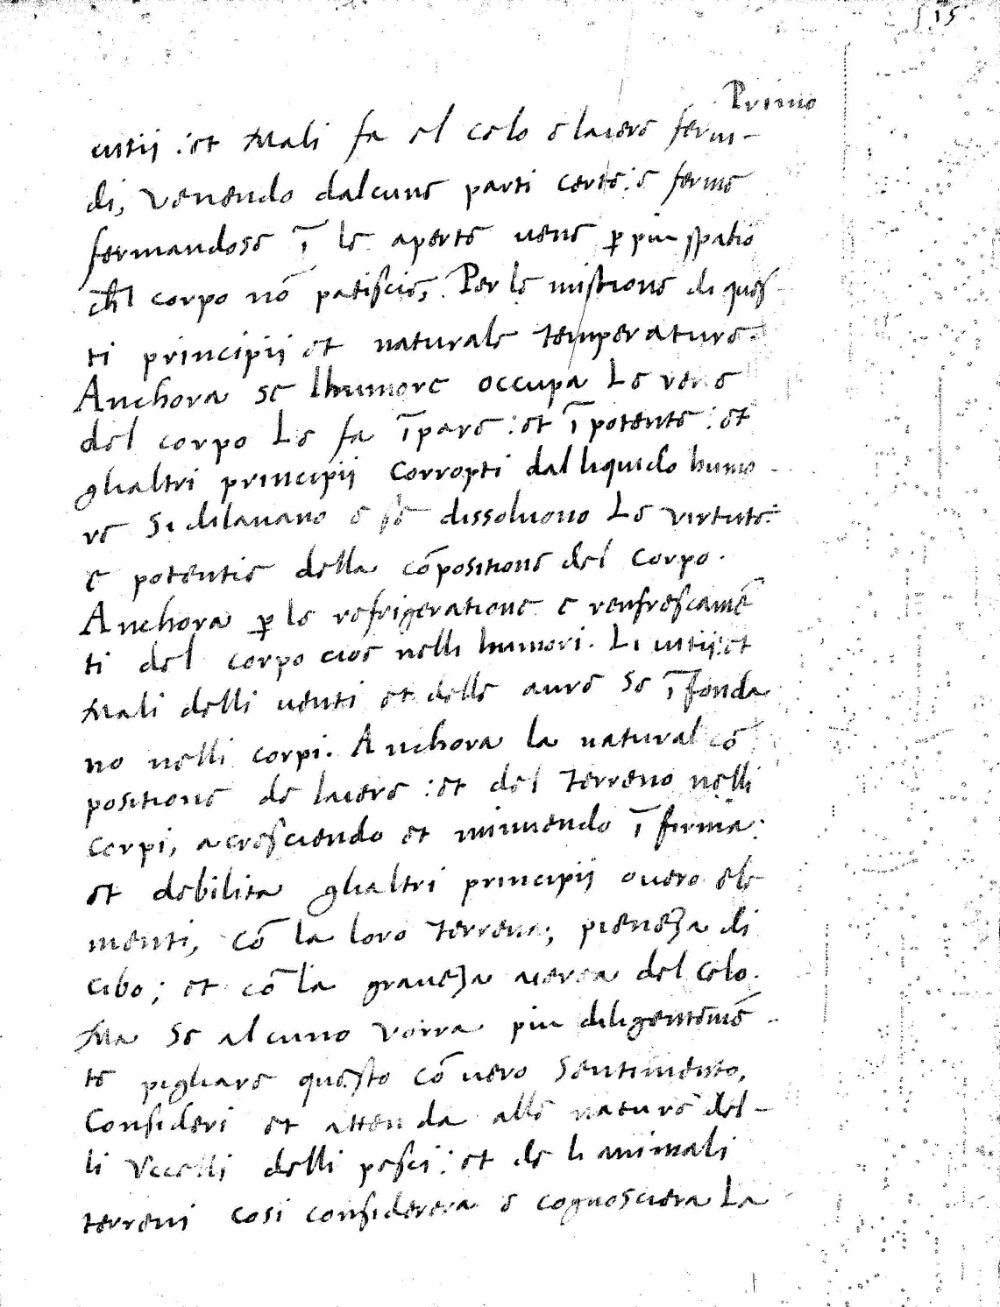 15
Primo
uitii : et Mali fa el celo e laiere fermi-
di, venendo dalcune parti certe : e ferme
fermandose ī le aperte uene ꝑ piu spatio
chl corpo nō patiscie, Per le mistione di ques-
ti principii et naturale temperature.
Anchora se lhumore occupa Le vene
del corpo Le fa īpare : et īpotente : et
ghaltri principii corropti dal liquido humo-
re Si dilauano e se dissoluono Le virtute :
e potentie della cōpositione del corpo.
Anchora ꝑ le refrigeratione e renfrescamē
ti del corpo cioe nelli humori. Li uitii : et
Mali delli uenti et delle aure se īfonda
no nelli corpi. Anchora la natural cō
positione de laiere : et del terreno nelli
corpi, acresciendo et minuendo ī firma :
et debilita ghaltri principii ouero ele
menti, cō la loro terrena; pieneza di
cibo; et cō la graueza aierea del celo.
Ma se alcuno vorra piu diligentemē-
te pigliare questo cō uero sentimento,
Consideri et attenda alle nature del-
li Vccelli delli pesci : et de li animali
terreni cosi considerera e cognosciera La